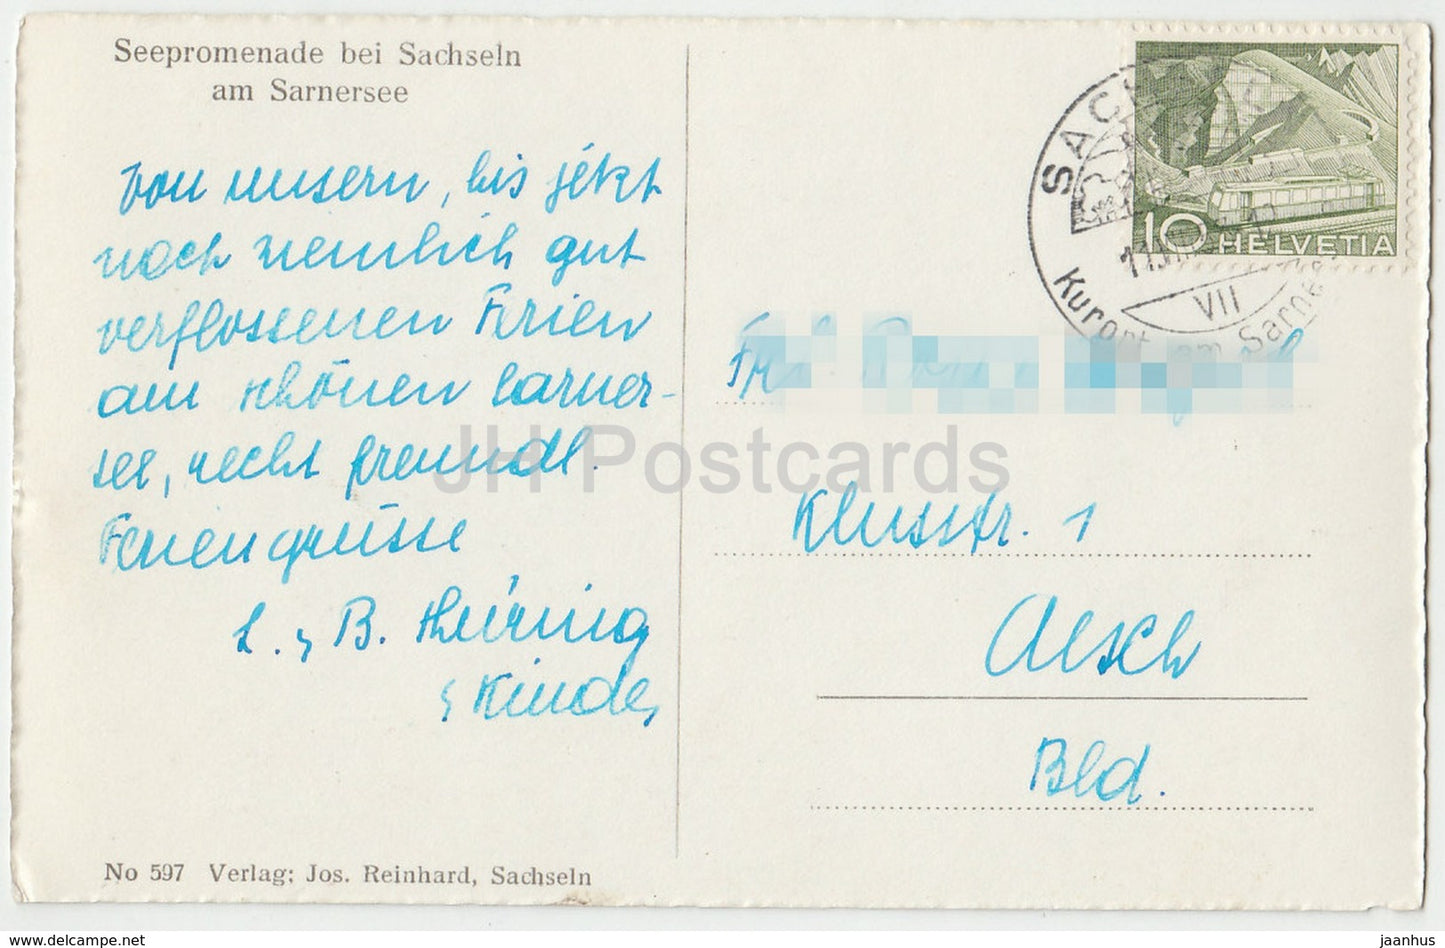 Seepromenade bei Sachseln
am Sarnersee
Von unsern, bis jetzt
noch ziemlich gut
verflossenen Ferien
am schönen Sarner-
see, recht freundl.
Feriengrüsse
L. & B. Thüring
& Kinder
No 597 Verlag: Jos. Reinhard, Sachseln
10 HELVETIA
SACH
VII
Kurort am Sarne
Frl.
Klusstr. 1
Aesch
Bld.
JH Postcards
delcampe.net
jaanhus